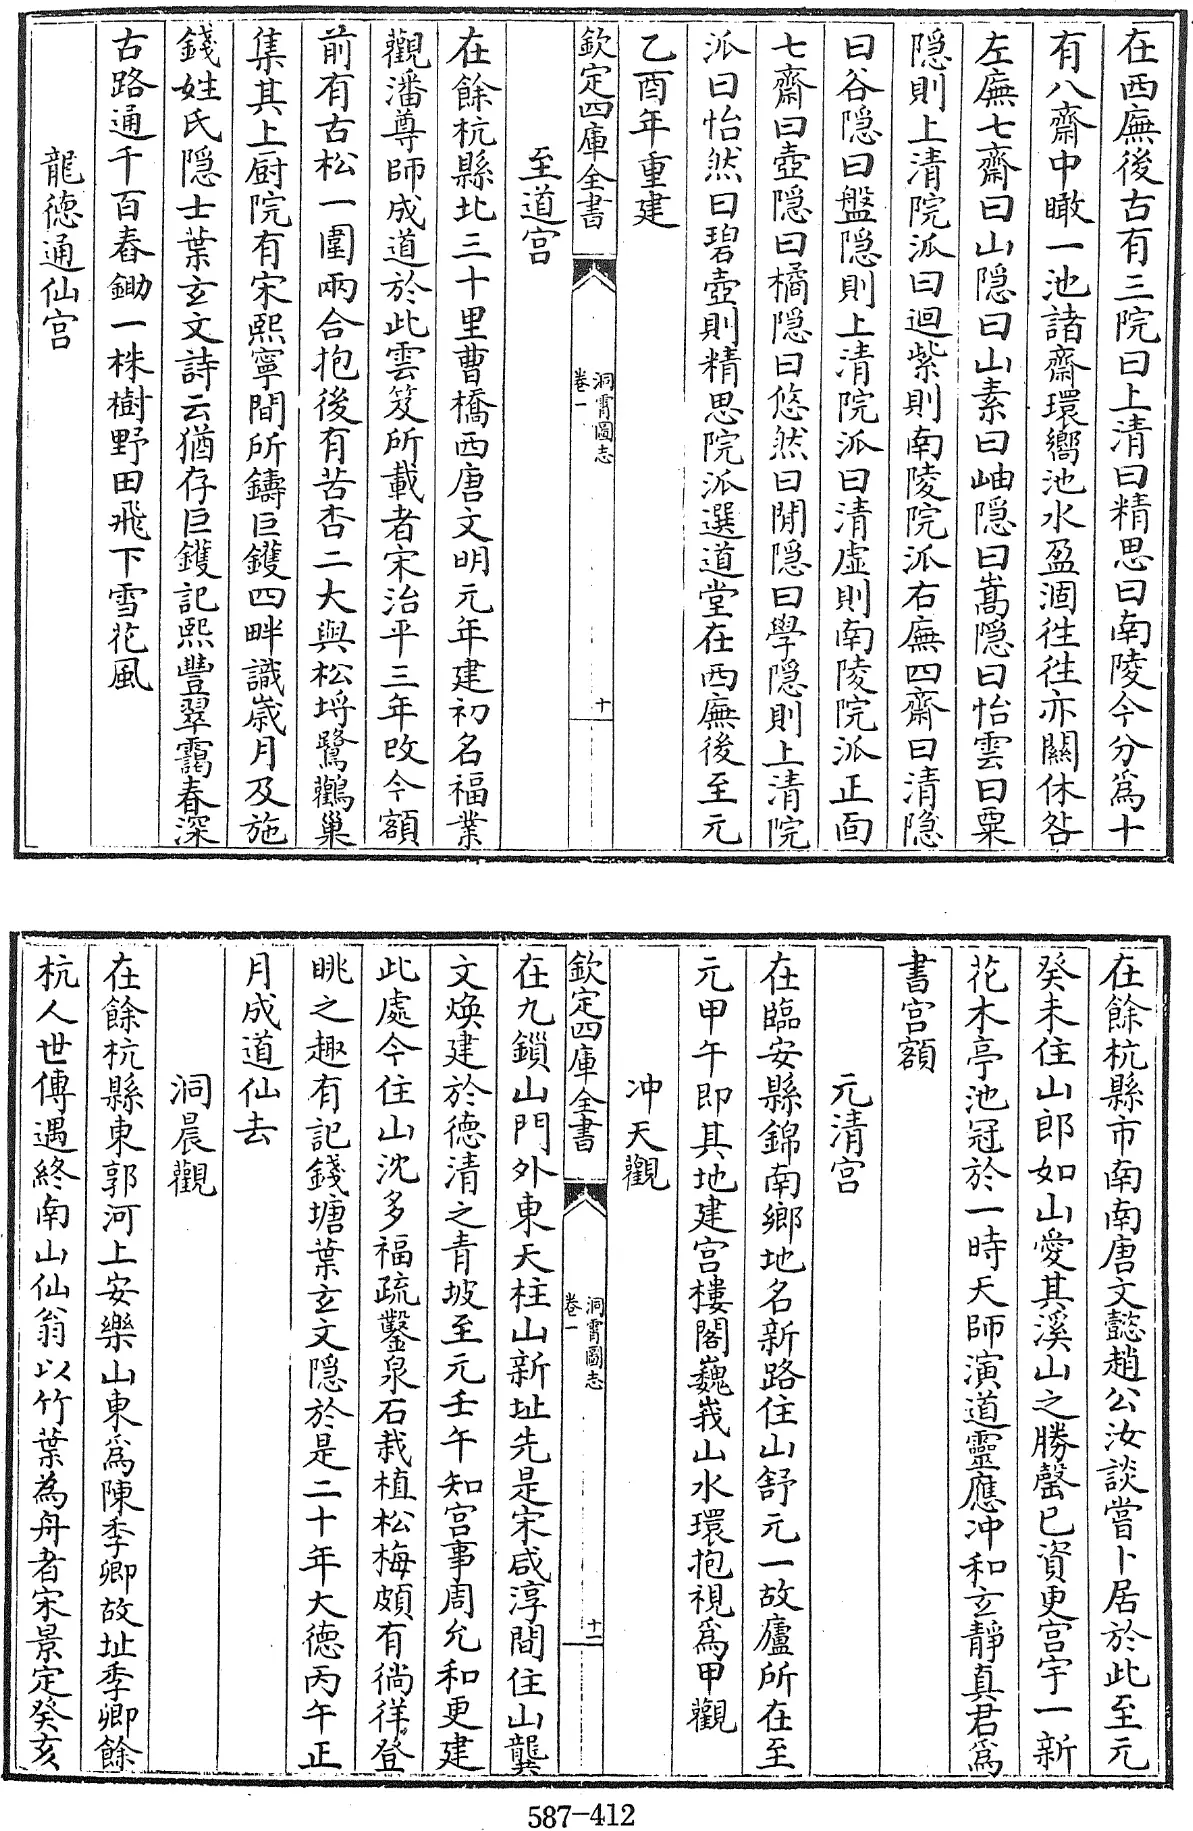 在西廡後古有三院曰上清曰精思曰南陵今分爲十
有八齋中瞰一池諸齋環嚮池水盈涸徃徃亦關休咎
左廡七齋曰山隠曰山素曰岫隠曰嵩隠曰怡雲曰粟
隠則上清院派曰迴紫則南陵院派右廡四齋曰清隠
曰谷隠曰盤隠則上清院派曰清虚則南陵院派正面
七齋曰壺隠曰橘隠曰悠然曰閒隠曰學隠則上清院
派曰怡然曰碧壺則精思院派選道堂在西廡後至元
乙酉年重建
欽定四庫全書
洞霄圖志
卷一
十
至道宫
在餘杭縣北三十里曹橋西唐文明元年建初名福業
觀潘尊師成道於此雲笈所載者宋治平三年改今額
前有古松一圍兩合抱後有苦杏二大與松埒鷺鸛巢
集其上厨院有宋熙寧間所鑄巨鑊四畔識嵗月及施
錢姓氏隠士葉玄文詩云猶存巨鑊記熙豐翠靄春深
古路通千百舂鋤一株樹野田飛下雪花風
龍徳通仙宫
在餘杭縣市南南唐文懿趙公汝談嘗卜居於此至元
癸未住山郎如山愛其溪山之勝罄己資更宫宇一新
花木亭池冠於一時天師演道靈應冲和玄靜真君爲
書宫額
元清宫
在臨安縣錦南鄉地名新路住山舒元一故廬所在至
元甲午即其地建宫樓閣巍峩山水環抱視爲甲觀
冲天觀
欽定四庫全書
洞霄圖志
卷一
十一
在九鎖山門外東天柱山新址先是宋咸淳間住山龔
文焕建於德清之青坡至元壬午知宫事周允和更建
此處今住山沈多福疏鑿泉石栽植松梅頗有徜徉登
眺之趣有記錢塘葉玄文隠於是二十年大德丙午正
月成道仙去
洞晨觀
在餘杭縣東郭河上安樂山東爲陳季卿故址季卿餘
杭人世傳遇終南山仙翁以竹葉為舟者宋景定癸亥
587-412